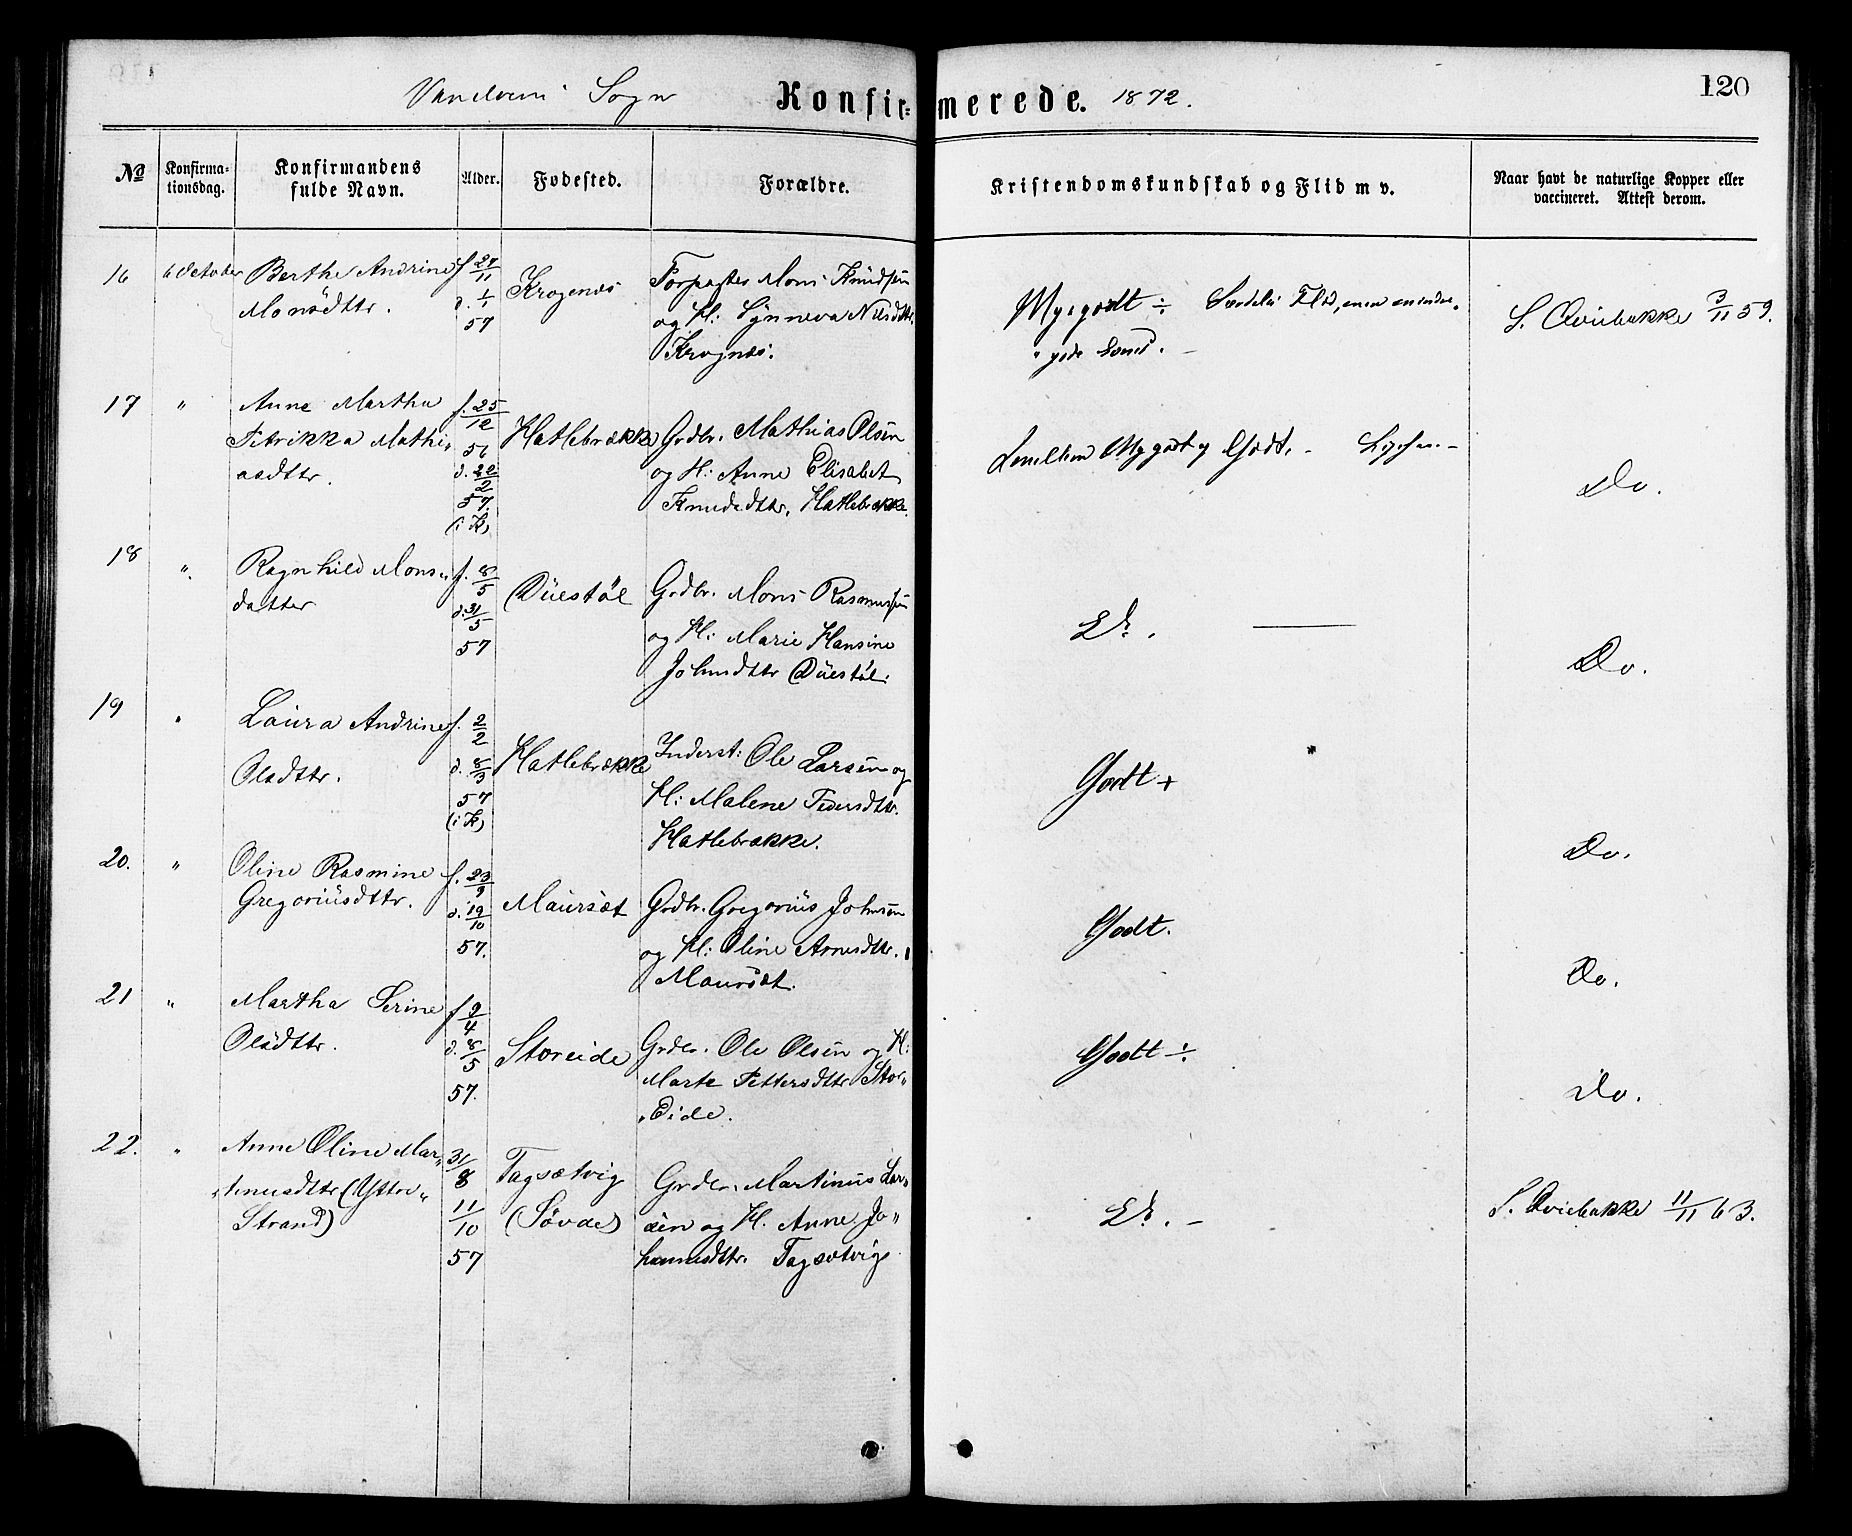 120
Sogn Konfir= merede. 1872.
No Konfirma=
tionsdag. Konfirmandens
fulde Navn. Alder. Fødested. Forældre. Kristendomskundskab og Flid m v. Naar havt de naturlige Kopper eller
vaccineret. Attest derom.
16 6 October Berthe Andrine
Monsdttr.
f. 27/11
d. 1/1
57
Krogenæs
Forpagter Mons Knudsen
og H: Synneva Nilsdttr.
Krognæs.
Mgegodt ÷ Særdeles Flid, men mindre
gode Evner. -
S. Qviebakke 3/11 59.
17 "
Anne Martha
Petrikka Mathi„
asdttr.
f. 25/12
56
d. 22/2
57.
(i K)
Hatlebrække
Grdbr. Mathias Olsen
og H: Anne Elisabet
Knudsdttr. Hatlebrække.
Mg godt og Godt. -
Do.
18 ".
Ragnhild Mons„
datter
f. 8/5
d. 31/5
57
Düestøl
Grdbr. Mons Rasmussen
og H: Marie Hansine
Johnsdttr Düestøl.
Do.
19 "
Laura Andrine
Olsdttr.
f. 2/2
d. 8/3
57
(i K)
Hatlebrække
Inderst: Ole Larsen og
H: Malene Pedersdttr.
Hatlebrække.
Godt +
Do.
20. "
Oline Rasmine
Gregoriusdttr.
f. 23/9
d. 19/10
57.
Maursæt
Grdbr. Gregorius Johnsen
og H: Oline Arnesdttr.
Maursæt.
Godt.
Do.
21 "
Martha Serine
Olsdttr.
f 9/4
d. 8/5
57.
Storeide
Grdbr. Ole Olsen og H:
Marte Pettersdttr Stor„
„Eide.
Godt ÷
Do.
22. "
Anne Oline Mar„
„tinusdttr (Ytre„
Strand)
31/8
11/10
57
Tagsætvig
(Søvde)
Grdbr. Martinus Lar„
sen og H. Anne Jo„
hannesdttr. Tagsætvig
S. Qviebakke 11/11 63.